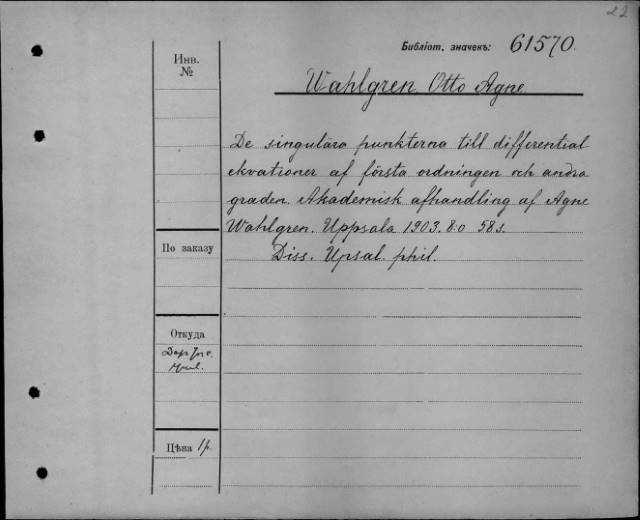 22
Библіот. значекъ: 61570.
Инв.
№
Wahlgren Otto Agne
De singulära punkterna till differential
ekvationer af första ordningen och andra
graden. Akademisk afhandling af Agne
Wahlgren. Uppsala 1903. 8.o 58 s.
Diss. Upsal. phil.
По заказу
Откуда
Цѣна 1 р.